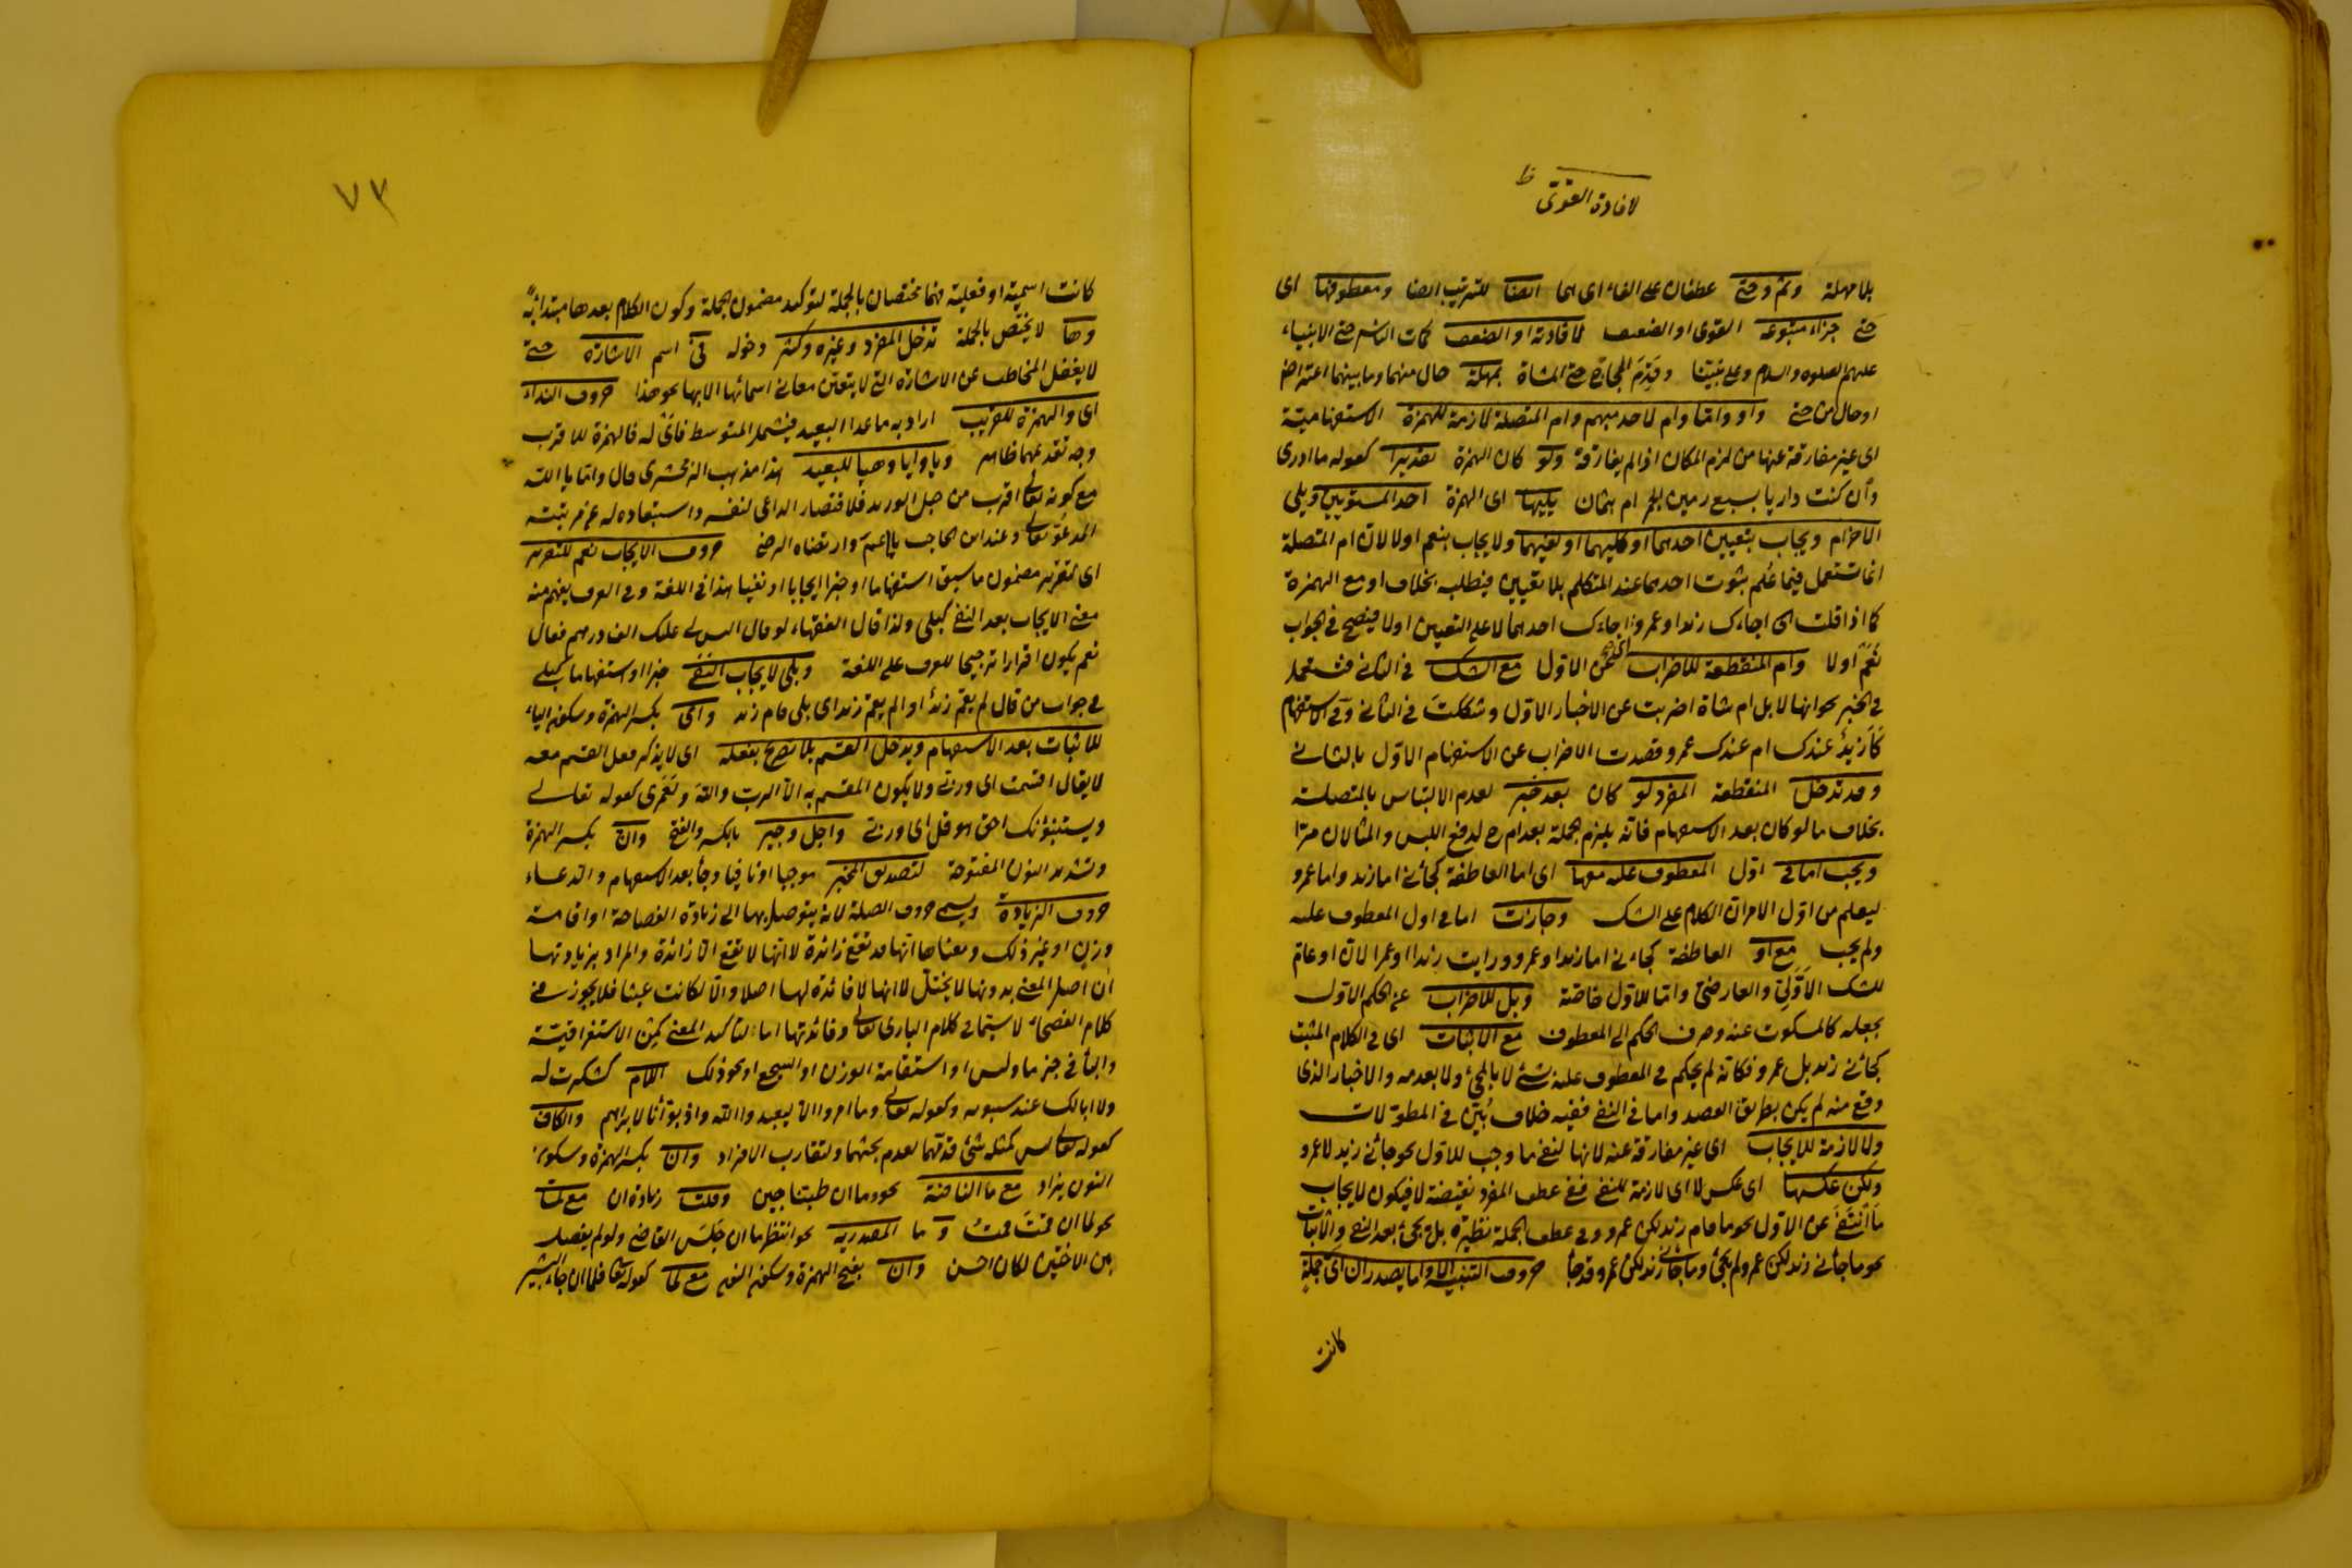 لافادة القوى ظ
بلا مهلة وثم وحتى عطفان على الفاء اى هما ايضا للترتيب ايضا ومعطوفها اى
حتى جزاء متبوعه القوى او الضعيف لافادته او الضعف كمات الناس حتى الانبياء
عليهم الصلوه والسلام وعلى نبينا وقدم الحجاج حتى المشاة بمهلة حال منهما وما بينهما اعتراض
او حال من حتى واو واما وام لاحد مبهم وام المتصلة لازمة للهمزة الاستفهامية
اى غير مفارقة عنها من لزم المكان اذا لم يفارقه ولو كان الهمزة تقديرا كقوله ما ادرى
وان كنت داريا بسبع رمين الجمر ام بثمان يليها اى الهمزة احد المستويين ويلى
الاخر ام ويجاب بتعيين احدهما او كليهما او نفيهما ولا يجاب بنعم اولا لان ام المتصلة
انما تستعمل فيما علم ثبوت احدهما عند المتكلم بلا تعيين فيطلبه بخلاف او مع الهمزة
كما اذا قلت اجاءك زيد او عمرو اى اجاءك احدهما لا على التعيين اولا فيصح فى الجواب
نعم اولا وام المنقطعة للاضراب عن الاول مع الشك فى الثانى فتستعمل
فى الخبر نحو انها لابل ام شاة اضربت عن الاخبار الاول وشككت فى الثانى وفى الاستفهام
كأزيد عندك ام عندك عمرو قصدت الاضراب عن الاستفهام الاول بالثانى
وقد تدخل المنقطعة المفرد لو كان بعد خبر لعدم الالتباس بالمتصلة
بخلاف ما لو كان بعد الاستفهام فانه يلزم الجملة بعد ام ح لدفع اللبس والمثالان مرا
ويجب اما فى اول المعطوف عليه معها اى اما العاطفة كجائنى اما زيد واما عمرو
ليعلم من اول الامر ان الكلام على الشك وجازت اما فى اول المعطوف عليه
ولم يجب مع او العاطفة كجاءنى اما زيد او عمرو ورايت زيدا او عمرا لان او عام
للشك الاولى والعارضى واما للاول خاصة وبل للاضراب عن الحكم الاول
بجعله كالمسكوت عنه وصرف الحكم الى المعطوف مع الاثبات اى فى الكلام المثبت
كجائنى زيد بل عمرو فكانه لم يحكم فى المعطوف عليه بشئ لا بالمجئ ولا بعدمه والاخبار الذى
وقع منه لم يكن بطريق القصد واما فى النفى ففيه خلاف بين فى المطولات
ولا لازمة للايجاب اى غير مفارقة عنه لانها لنفى ما وجب للاول نحو جائنى زيد لا عمرو
ولكن عكسها اى عكس لا اى لازمة للنفى فى عطف المفرد نقيضة لا فيكون لايجاب
ما انتفى عن الاول نحو ما قام زيد لكن عمرو وفى عطف الجملة نظيرة بل تجئ بعد النفى والاثبات
نحو ما جائنى زيد لكن عمرو لم يجئ وما جائنى زيد لكن عمرو قد جأ حروف التنبيه الا واما يصدران اى جملة
كانت
٧٣
كانت اسمية او فعلية فهما مختصان بالجملة لتوكيد مضمون الجملة وكون الكلام بعدها مبتدائية
وها لا يختص بالجملة تدخل المفرد وغيره وكثر دخوله فى اسم الاشارة حتى
لا يغفل المخاطب عن الاشارة التى لا يتعين معانى اسمائها الا بها نحو هذا حروف النداء
اى والهمزة للقريب اراد به ما عدا البعيد فيشمل المتوسط فاى له فالهمزة للاقرب
وجه تقديمهما ظاهر ويا وايا وهيا للبعيد هذا مذهب الزمخشرى قال واما يا الله
مع كونه تعالى اقرب من حبل الوريد فلاقتصار الداعى لنفسه واستبعاده له عن مرتبته
المدعو تعالى وعند ابن الحاجب يا اعم وارتضاه الرضى حروف الايجاب نعم للتقرير
اى لتقرير مضمون ما سبق استفهاما او خبرا ايجابا او نفيا هذا فى اللغة وفى العرف يفهم منه
معنى الايجاب بعد النفى كبلى ولذا قال الفقهاء لو قال اليس لى عليك الف درهم فقال
نعم يكون اقرارا ترجيحا للعرف على اللغة وبلى لايجاب النفى خبرا او استفهاما كبلى
فى جواب من قال لم يقم زيد او الم يقم زيد اى بلى قام زيد واى بكسر الهمزة وسكون الياء
للاثبات بعد الاستفهام ويدخل القسم بلا تصريح بفعله اى لا يذكر فعل القسم معه
لا يقال اقسمت اى وربى ولا يكون المقسم به الا الرب والله ولعمرى كقوله تعالى
ويستنبؤنك احق هو قل اى وربى واجل وجير بالكسر والفتح وان بكسر الهمزة
وتشديد النون المفتوحة لتصديق المخبر موجبا او نافيا وجأ بعد الاستفهام والدعاء
حروف الزيادة ويسمى حروف الصلة لانه يتوصل بها الى زيادة الفصاحة او اقامة
وزن او غير ذلك ومعناها انها قد تقع زائدة لا انها لا تقع الا زائدة والمراد بزيادتها
ان اصل المعنى بدونها لا يختل لا انها لا فائدة لها اصلا والا لكانت عبثا فلا يجوز فى
كلام الفصحاء لا سيما فى كلام البارى تعالى وفائدتها اما لتأكيد المعنى كمن الاستغراقية
والبأ فى خبر ما وليس او استقامة الوزن او السجع او نحو ذلك اللام كشكرت له
ولا ابا لك عند سيبويه وكقوله تعالى وما امروا الا ليعبدوا الله واذ بوأنا لابراهيم والكاف
كقوله تعالى ليس كمثله شئ قدمها لعدم بحثهما ولتقارب الافراد وان بكسر الهمزة وسكون
النون يزاد مع ما النافية نحو وما ان طبنا جبن وقلت زيادة ان مع لما
نحو لما ان قمت قمت و ما المصدرية نحو انتظر ما ان جلس القاضى ولو لم يفصل
بين الاختين لكان احسن وان بفتح الهمزة وسكون النون مع لما كقوله تعالى فلما ان جاء البشير